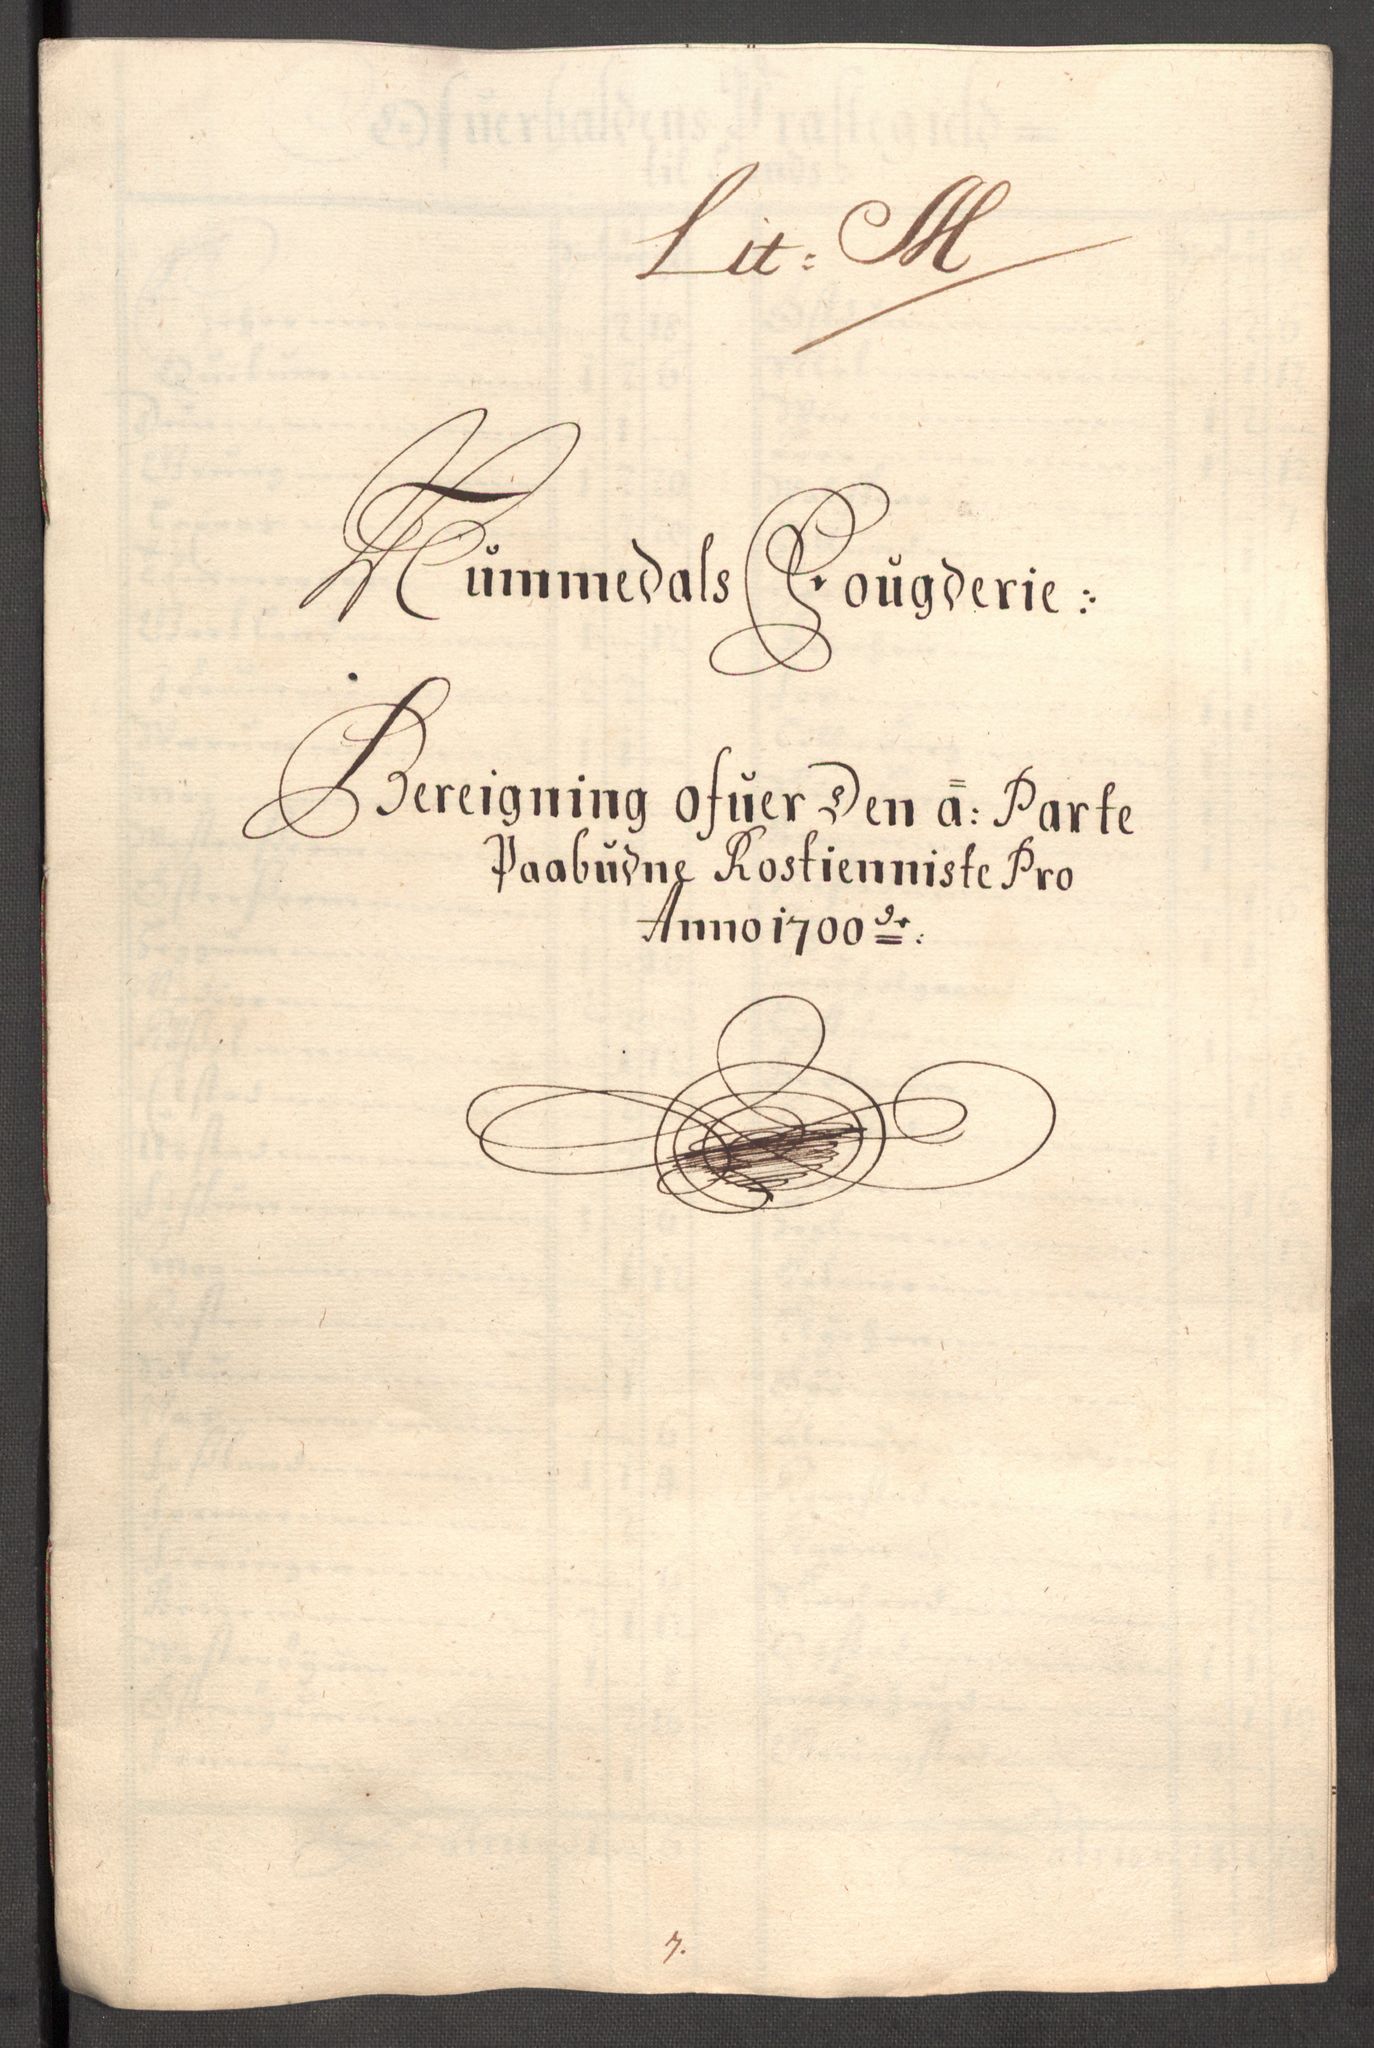 Lit: M
Nummedals Fougderie:
Bereigning ofuer den ā: Parte
Paabudne Rostienniste Pro
Anno 1700 dr:
7.